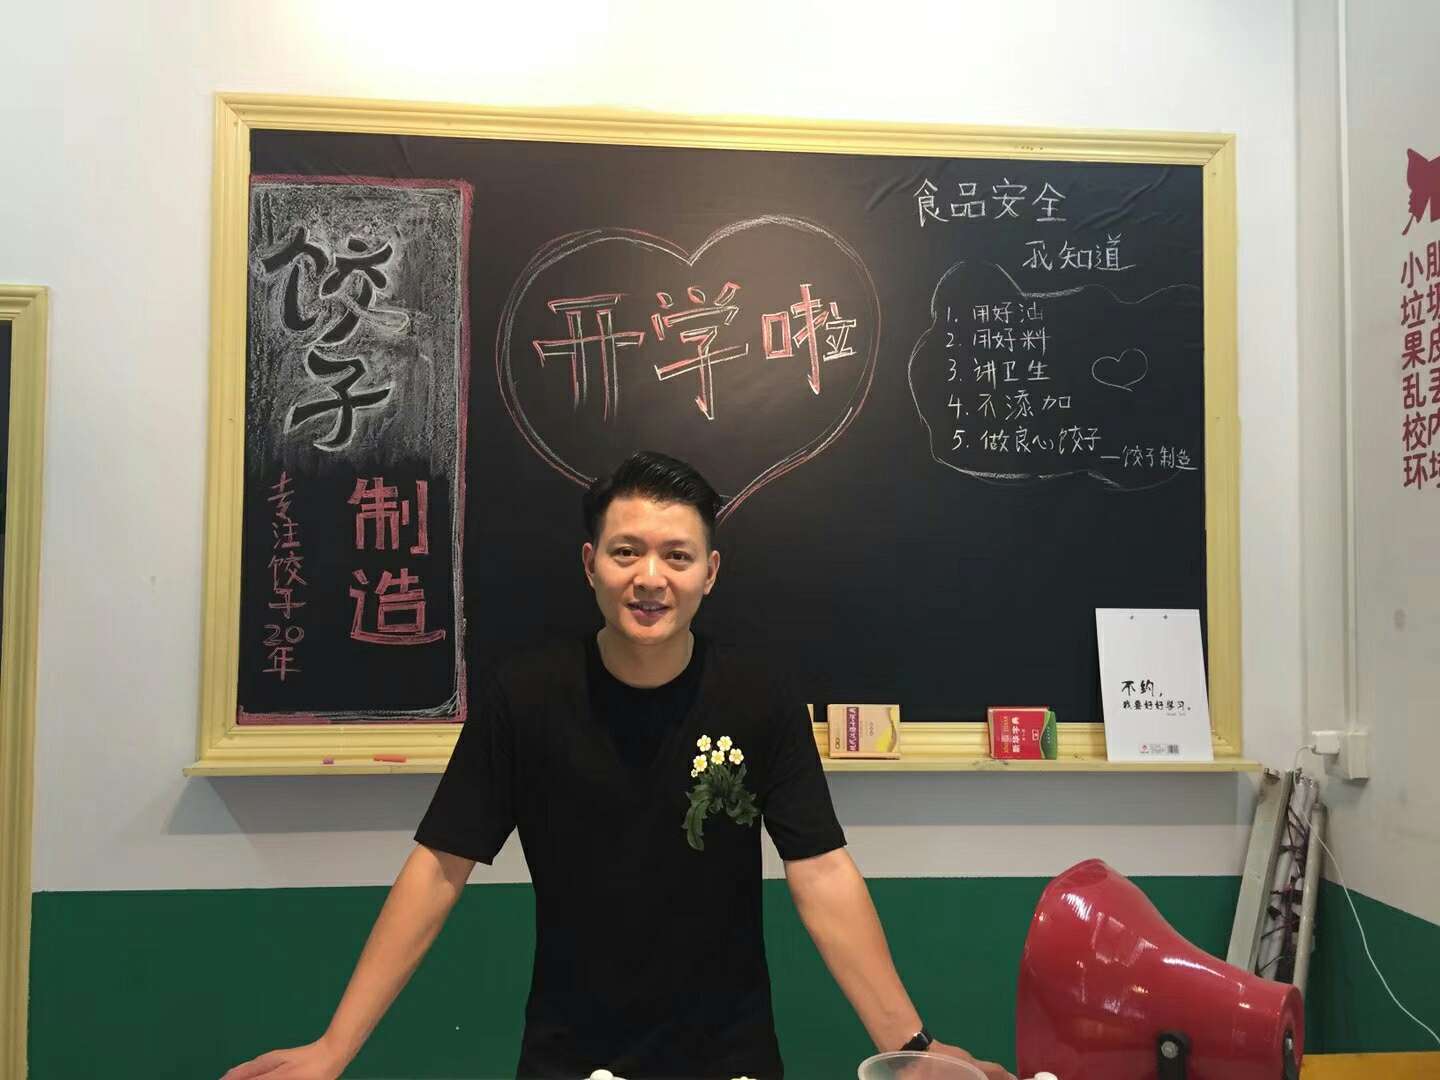 饺子
制造
专注饺子20年
开学啦
食品安全
我知道
1. 用好油
2. 用好料
3. 讲卫生
4. 不添加
5. 做良心饺子
—饺子制造
不约，
我要好好学习。
新华字典
小垃果乱校环